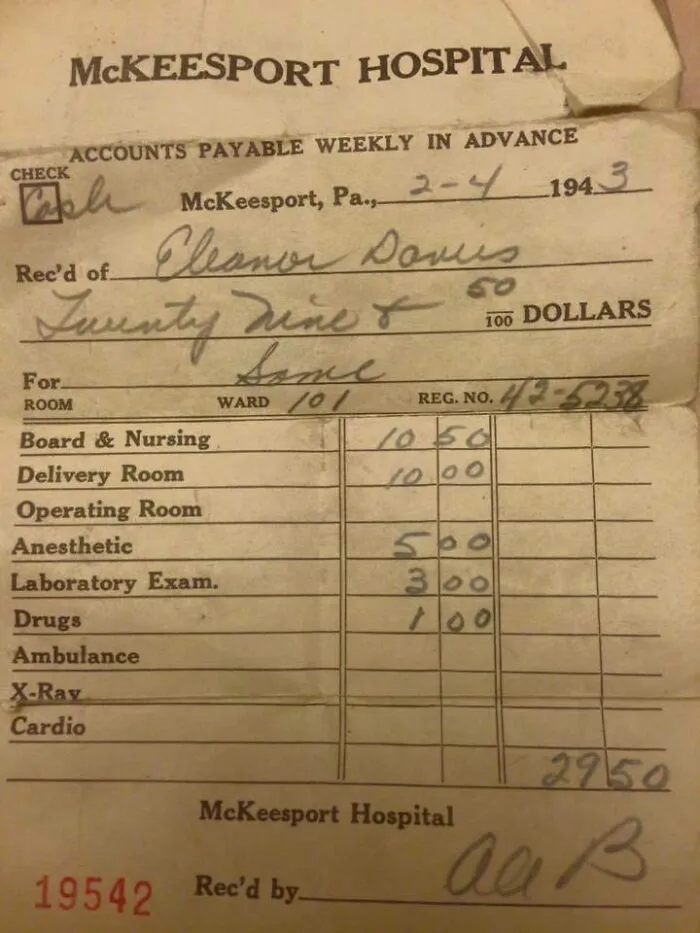 McKEESPORT HOSPITAL
ACCOUNTS PAYABLE WEEKLY IN ADVANCE
CHECK
Cash McKeesport, Pa., 2-4 1943
Rec'd of Eleanor Davies
Twenty Nine & 50/100 DOLLARS
For Same
ROOM WARD 101 REG. NO. 42-5238
Board & Nursing 10 50
Delivery Room 10 00
Operating Room
Anesthetic 5 00
Laboratory Exam. 3 00
Drugs 1 00
Ambulance
X-Ray
Cardio
29 50
McKeesport Hospital
19542 Rec'd by AA B